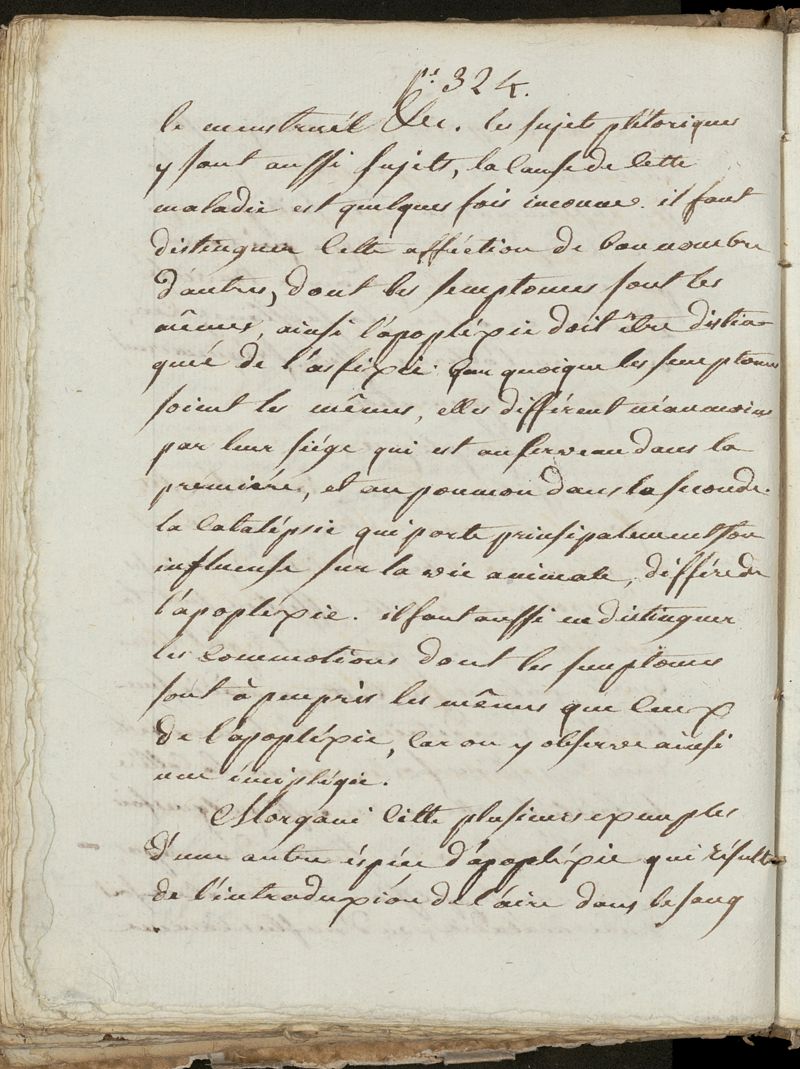 ps. 324.
le menstruél &c. les sujets plétoriques
y sont aussi sujets, la cause de cette
maladie est quelques fois inconnue. il faut
distinguer cette afféction de bon nombre
d'autres, dont les semptomes sont les
mêmes, ainsi l'apopléxie doit être distin-
gueé de l'asfixie. car quoique les semptomes
soient les mêmes, elles différent néanmoins
par leur siége qui est au serveau dans la
premiére, et au poumon dans la seconde.
la catalépsie qui porte prinsipalement son
influense sur la vie animale, différe de
l'apoplexie. il faut aussi en distinguer
les commotions dont les semptomes
sont à peu près les mêmes que ceux
de l'apopléxie, car on y observe ainsi
une émiplégie.
Morgani citte plusieurs exemples
d'une autre éspéce d'apopléxie qui résulte
de l'introduxion de l'aire dans le sang